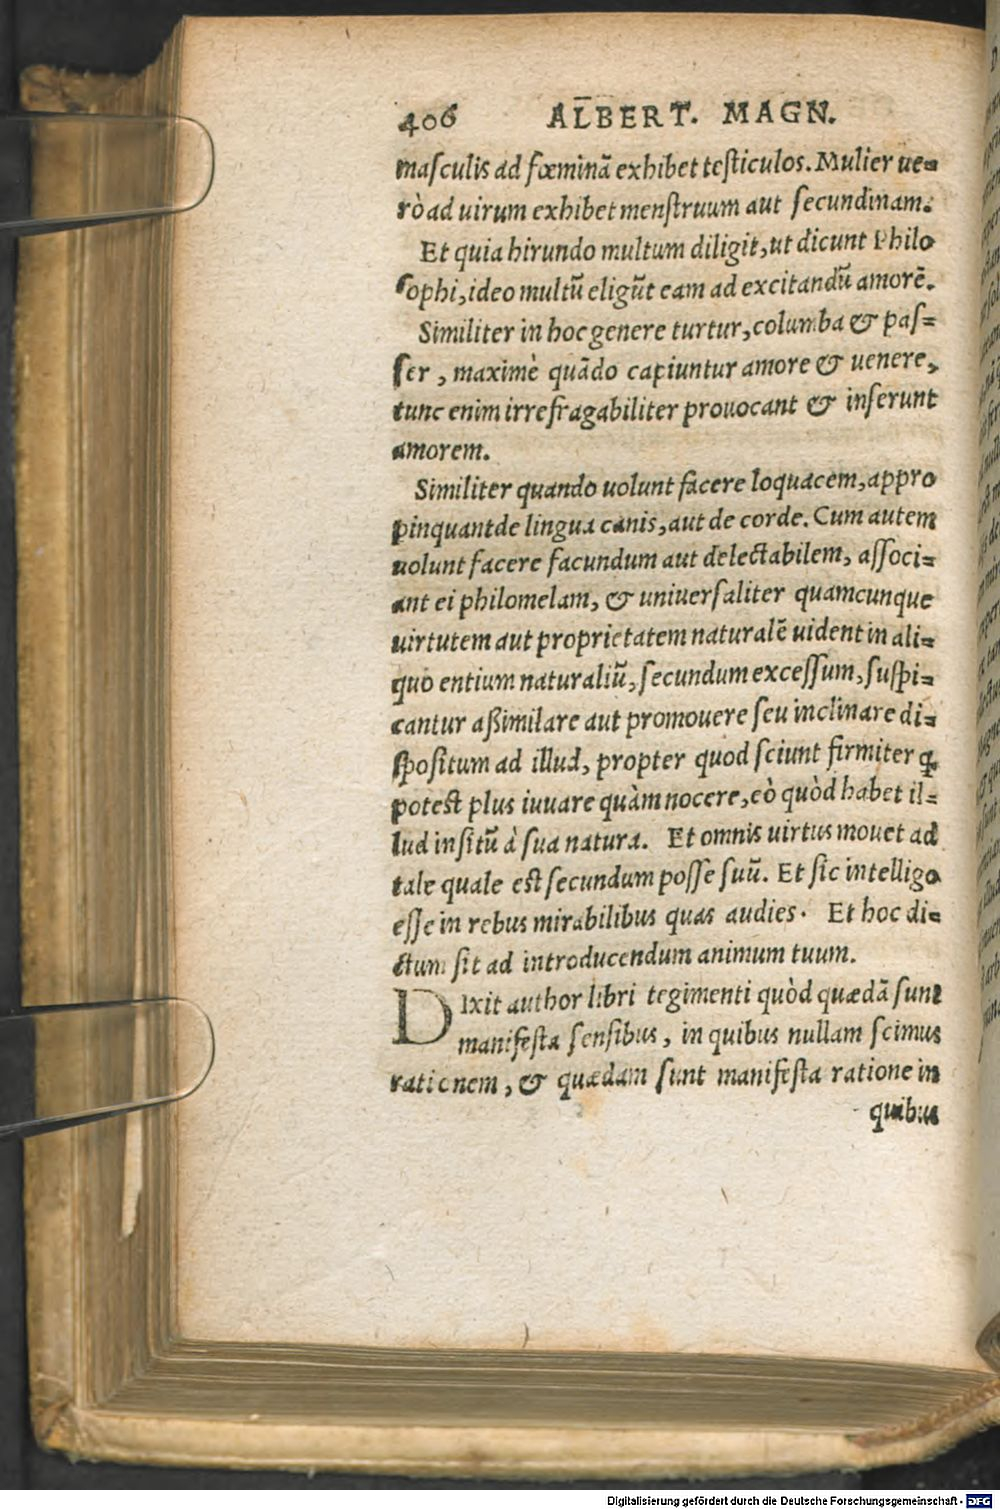 406 ALBERT. MAGN.
masculis ad fœminã exhibet testiculos. Mulier ue=
rò ad uirum exhibet menstruum aut secundinam.
Et quia hirundo multum diligit, ut dicunt Philo
sophi, ideo multũ eligũt eam ad excitandũ amorẽ.
Similiter in hoc genere turtur, columba & pas=
ser, maximè quãdo capiuntur amore & uenere,
tunc enim irrefragabiliter prouocant & inserunt
amorem.
Similiter quando uolunt facere loquacem, appro
pinquant de lingua canis, aut de corde. Cum autem
uolunt facere facundum aut delectabilem, associ=
ant ei philomelam, & uniuersaliter quamcunque
uirtutem aut proprietatem naturalẽ uident in ali=
quo entium naturaliũ, secundum excessum, suspi=
cantur aßimilare aut promouere seu inclinare di=
spositum ad illud, propter quod sciunt firmiter ꝙ
potest plus iuuare quàm nocere, eò quòd habet il=
lud insitũ à sua natura. Et omnis uirtus mouet ad
tale quale est secundum posse suũ. Et sic intelligo
esse in rebus mirabilibus quas audies. Et hoc di=
ctum sit ad introducendum animum tuum.
DIxit author libri tegimenti quòd quædã sunt
manifesta sensibus, in quibus nullam scimus
rationem, & quædam sunt manifesta ratione in
quibus
Digitalisierung gefördert durch die Deutsche Forschungsgemeinschaft - DFG